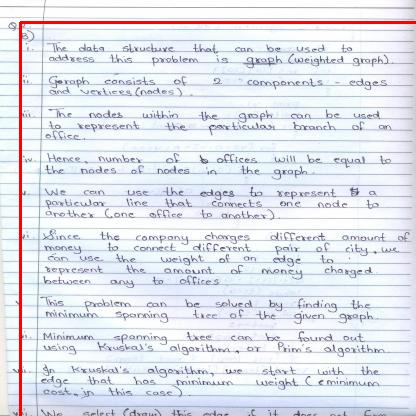 3)
i. The data structure that can be used to
address this problem is graph (weighted graph).
ii. Graph consists of 2 components - edges
and vertices (nodes).
iii. The nodes within the graph can be used
to represent the particular branch of an
office.
iv. Hence, number of offices will be equal to
the nodes of nodes in the graph.
v. We can use the edges to represent a
particular line that connects one node to
another (one office to another).
vi. Since the company charges different amount of
money to connect different pair of city, we
can use the weight of an edge to
represent the amount of money charged
between any to offices.
This problem can be solved by finding the
minimum spanning tree of the given graph.
Minimum spanning tree can be found out
using Kruskal's algorithm, or Prim's algorithm.
In Kruskal's algorithm, we start with the
edge that has minimum weight (eminimum
cost, in this case).
We select (draw) this edge if it does not